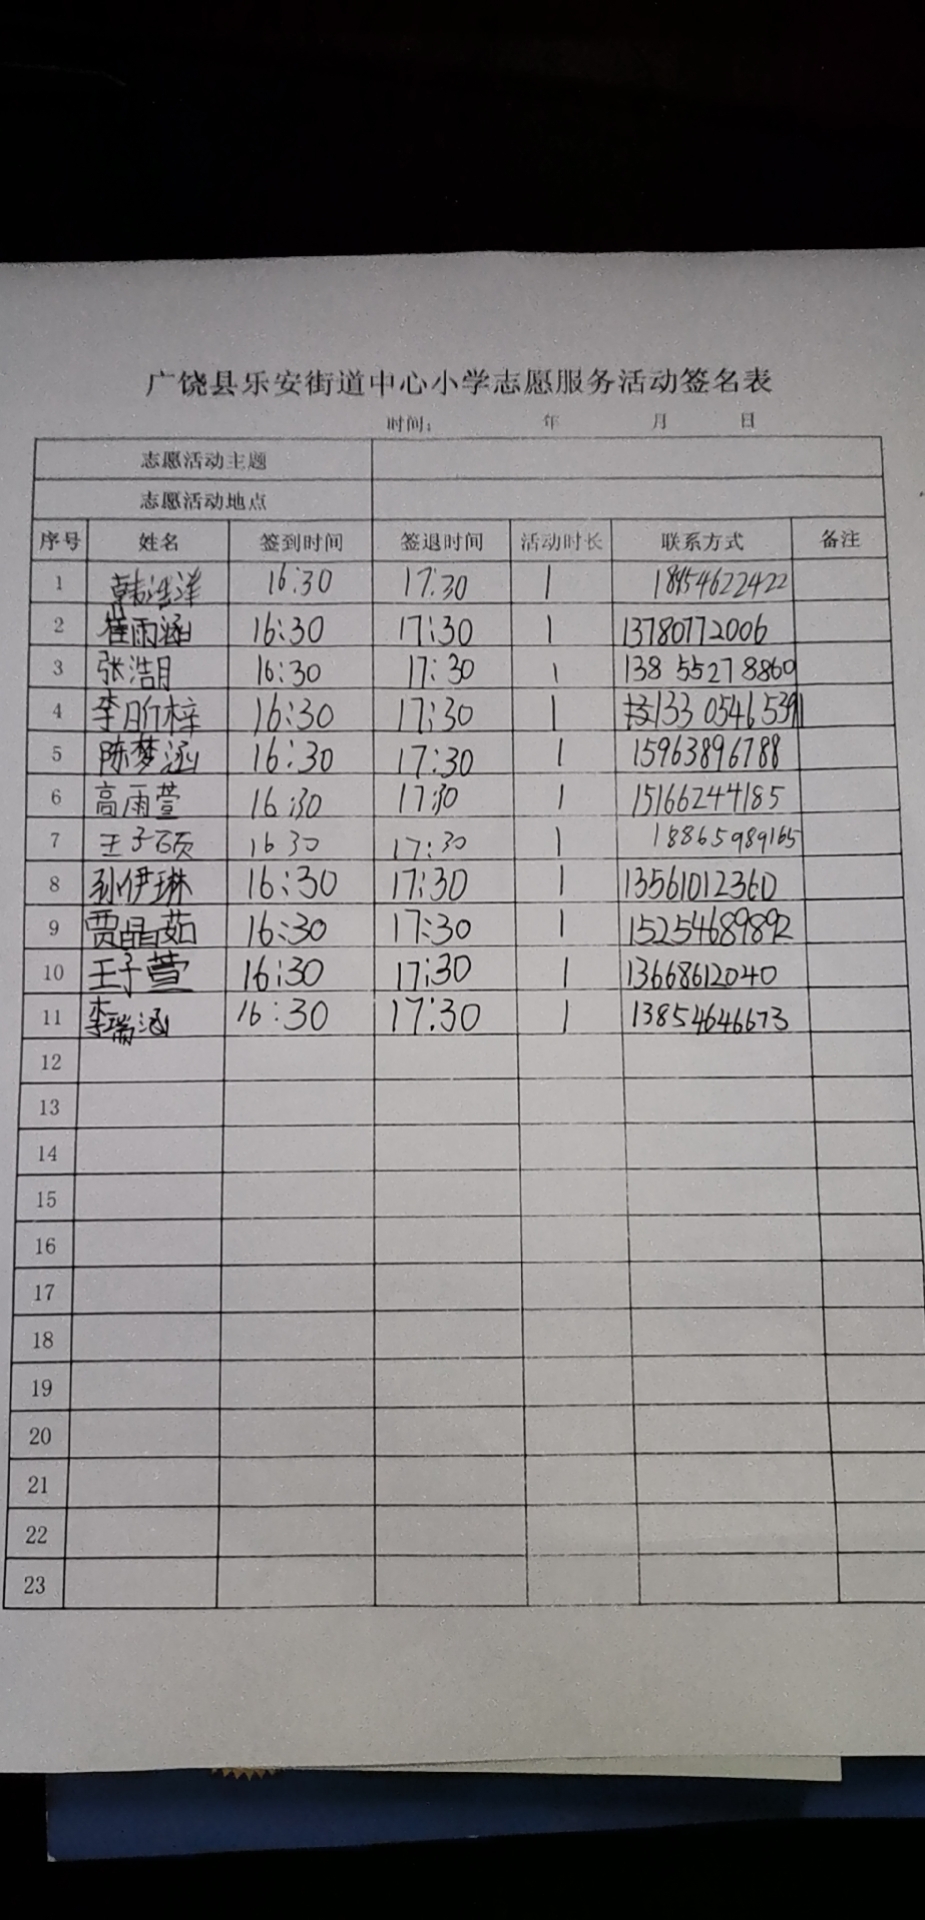 广饶县乐安街道中心小学志愿服务活动签名表
时间： 年 月 日
志愿活动主题
志愿活动地点
序号 姓名 签到时间 签退时间 活动时长 联系方式 备注
1 韩浩洋 16:30 17:30 1 18454622422
2 崔雨涵 16:30 17:30 1 13780772006
3 张浩月 16:30 17:30 1 138 55278860
4 李昕梓 16:30 17:30 1 133 0546 5391
5 陈梦涵 16:30 17:30 1 15963896788
6 高雨萱 16:30 17:30 1 15166244185
7 王子硕 16 30 17:30 1 18865989165
8 孙伊琳 16:30 17:30 1 13561012360
9 贾晶茹 16:30 17:30 1 15254689892
10 王子萱 16:30 17:30 1 13668612040
11 李瑞涵 16:30 17:30 1 13854646673
12
13
14
15
16
17
18
19
20
21
22
23